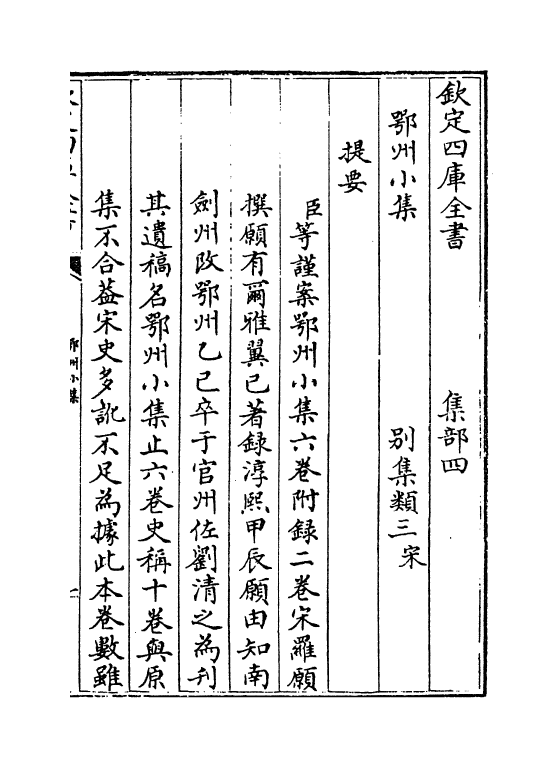 欽定四庫全書　集部四
鄂州小集　别集類三宋
提要
臣等謹案鄂州小集六卷附録二卷宋羅願
撰願有爾雅翼已著録淳熙甲辰願由知南
劍州改鄂州乙已卒于官州佐劉清之為刋
其遺稿名鄂州小集止六卷史稱十卷與原
集不合葢宋史多訛不足為據此本卷數雖
鄂州小集